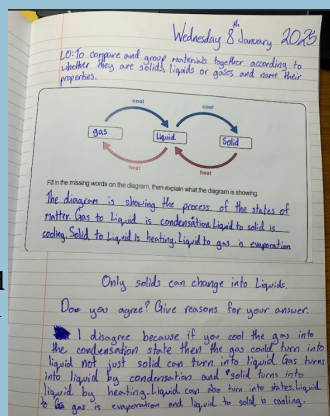 Wednesday 8th January 2025
LO: To compare and group materials together according to
whether they are solids, liquids or gases and name their
properties.
cool
cool
gas
Liquid
Solid
heat
heat
Fill in the missing words on the diagram, then explain what the diagram is showing.
The diagram is showing the process of the states of
matter. Gas to Liquid is condensation. Liquid to solid is
cooling. Solid to Liquid is heating. Liquid to gas is evaporation
Only solids can change into Liquids.
Do you agree? Give reasons for your answer.
I disagree because if you cool the gas into
the condensation state then the gas could turn into
liquid not just solid can turn into liquid. Gas turns
into liquid by condensation and solid turns into
liquid by heating. Liquid can also turn into states. Liquid
to gas is evaporation and liquid to solid is cooling.